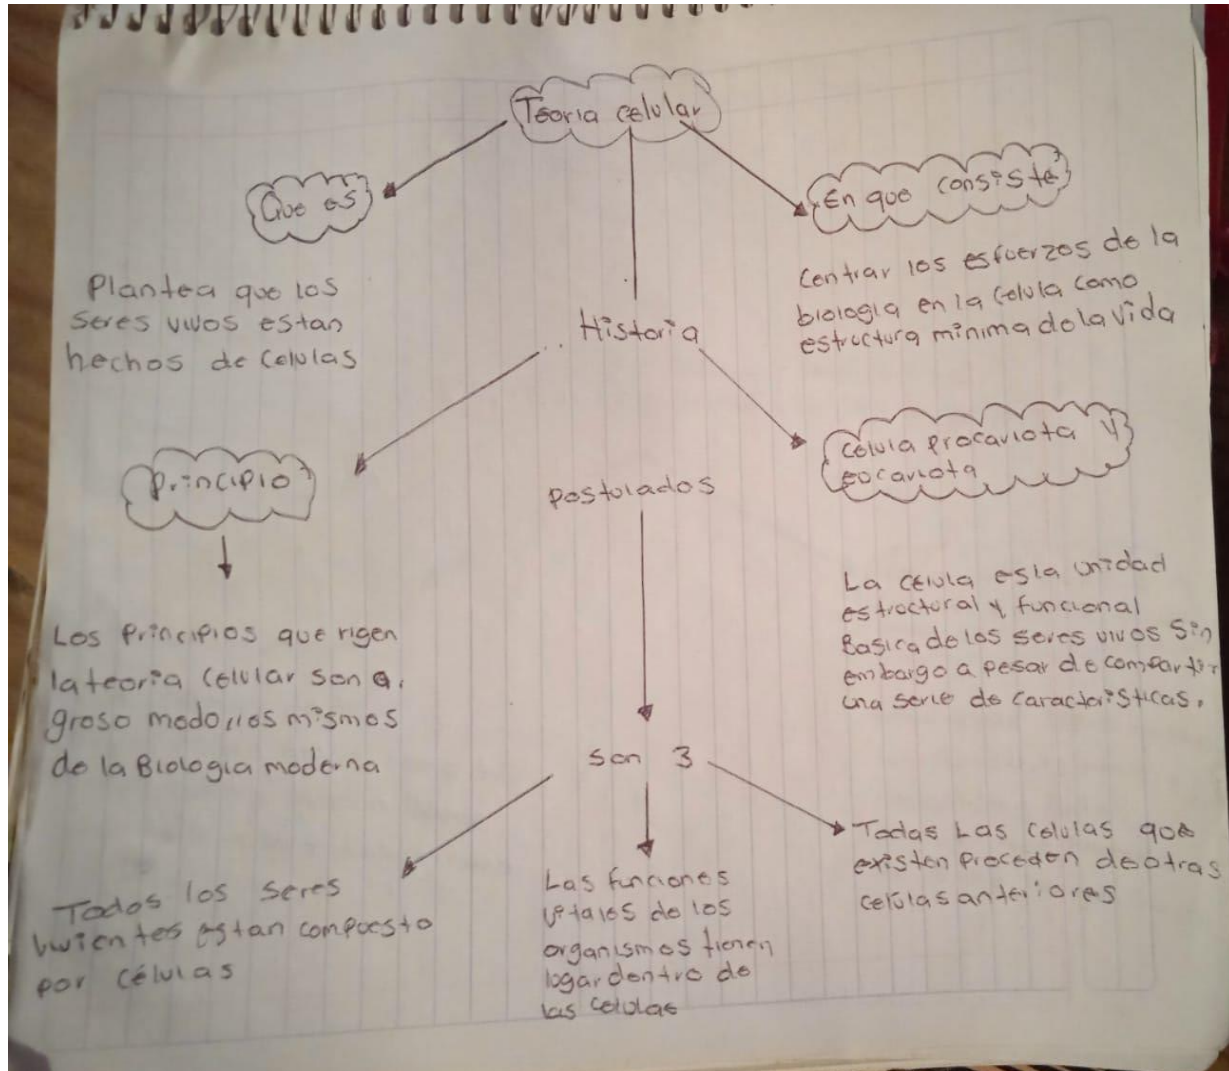 Teoria celular
Que es
En que consiste
Plantea que los
seres vivos estan
hechos de celulas
Centrar los esfuerzos de la
biologia en la celula como
estructura minima de la vida
Historia
Principio
celula procariota y
eocariota
postulados
Los Principios que rigen
la teoria celular son a.
groso modo, los mismos
de la Biologia moderna
La celula es la unidad
estructural y funcional
Basica de los seres vivos Sin
embargo a pesar de compartir
una serie de caracteristicas.
son 3
Todos los seres
vivientes estan compuesto
por células
Las funciones
vitales de los
organismos tienen
lugar dentro de
las celulas
Todas Las celulas que
existen proceden de otras
celulas anteriores